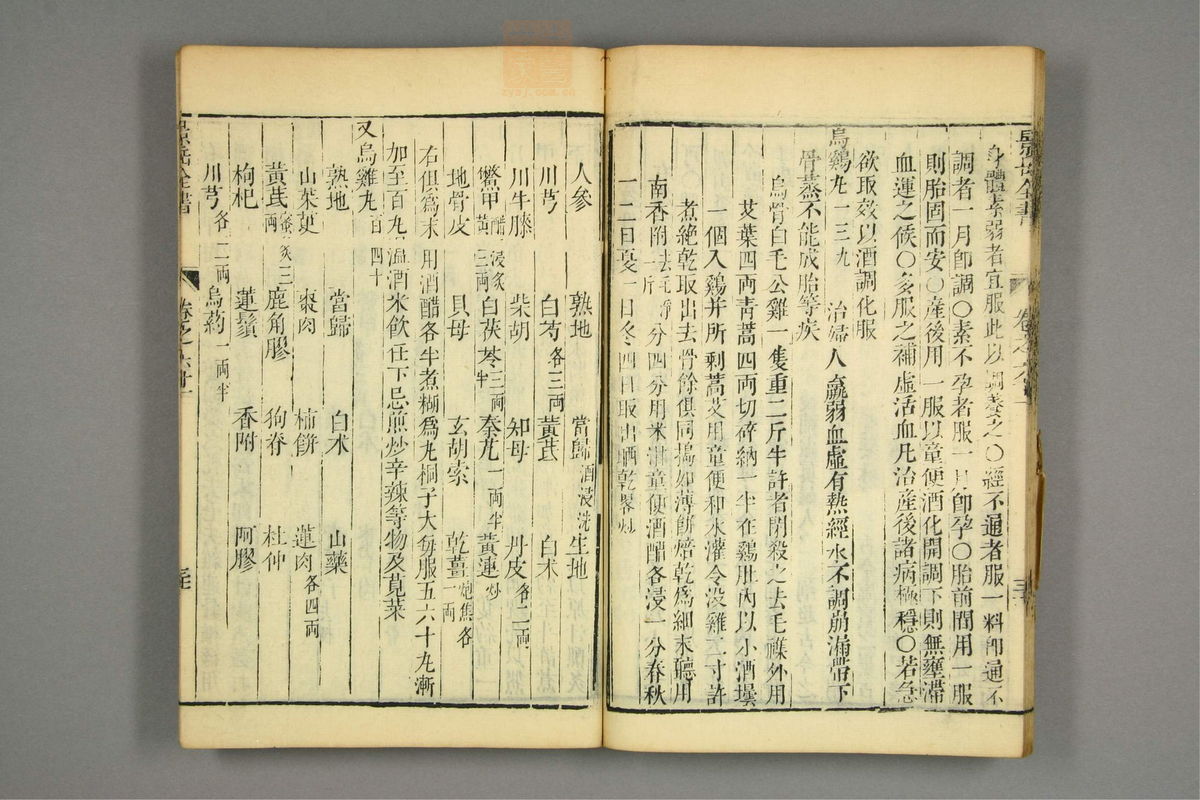 景岳全書 卷之六十一
身體素弱者宜服此以調養之〇經不通者服一料即通不
調者一月即調〇素不孕者服一月即孕〇胎前間用一服
則胎固而安〇產後用一服以童便酒化開調下則無壅滯
血運之候〇多服之補虛活血凡治產後諸病極穩〇若急
欲取效以酒調化服
烏鷄丸一三九 治婦人羸弱血虛有熱經水不調崩漏帶下
骨蒸不能成胎等疾
烏骨白毛公雞一隻重二斤半許者閉殺之去毛襍外用
艾葉四兩青蒿四兩切碎納一半在鷄肚內以小酒壜
一個入鷄并所剩蒿艾用童便和水灌令没雞二寸許
煮絶乾取出去骨餘俱同搗如薄餅焙乾爲細末聽用
南香附去毛淨一斤分四分用米泔童便酒醋各浸一分春秋
一二日夏一日冬四日取出晒乾畧炒
人參 熟地 當歸酒浸洗 生地
川芎 白芍各三兩 黃芪 白术
川牛膝 柴胡 知母 丹皮各二兩
鱉甲醋浸炙黃三兩 白茯苓二兩半 秦艽一兩半 黃連炒
地骨皮 貝母 玄胡索 乾薑炮焦各一兩
右俱爲末用酒醋各半煮糊爲丸桐子大每服五六十丸漸
加至百丸溫酒米飲任下忌煎炒辛辣等物及莧菜
又烏雞丸百四十
熟地 當歸 白术 山藥
山茱萸 棗肉 柿餅 蓮肉各四兩
黃芪蜜炙三兩 鹿角膠 狗脊 杜仲
枸杞 蓮鬚 香附 阿膠
川芎各二兩 烏藥一兩半
景岳全書 卷之六十一